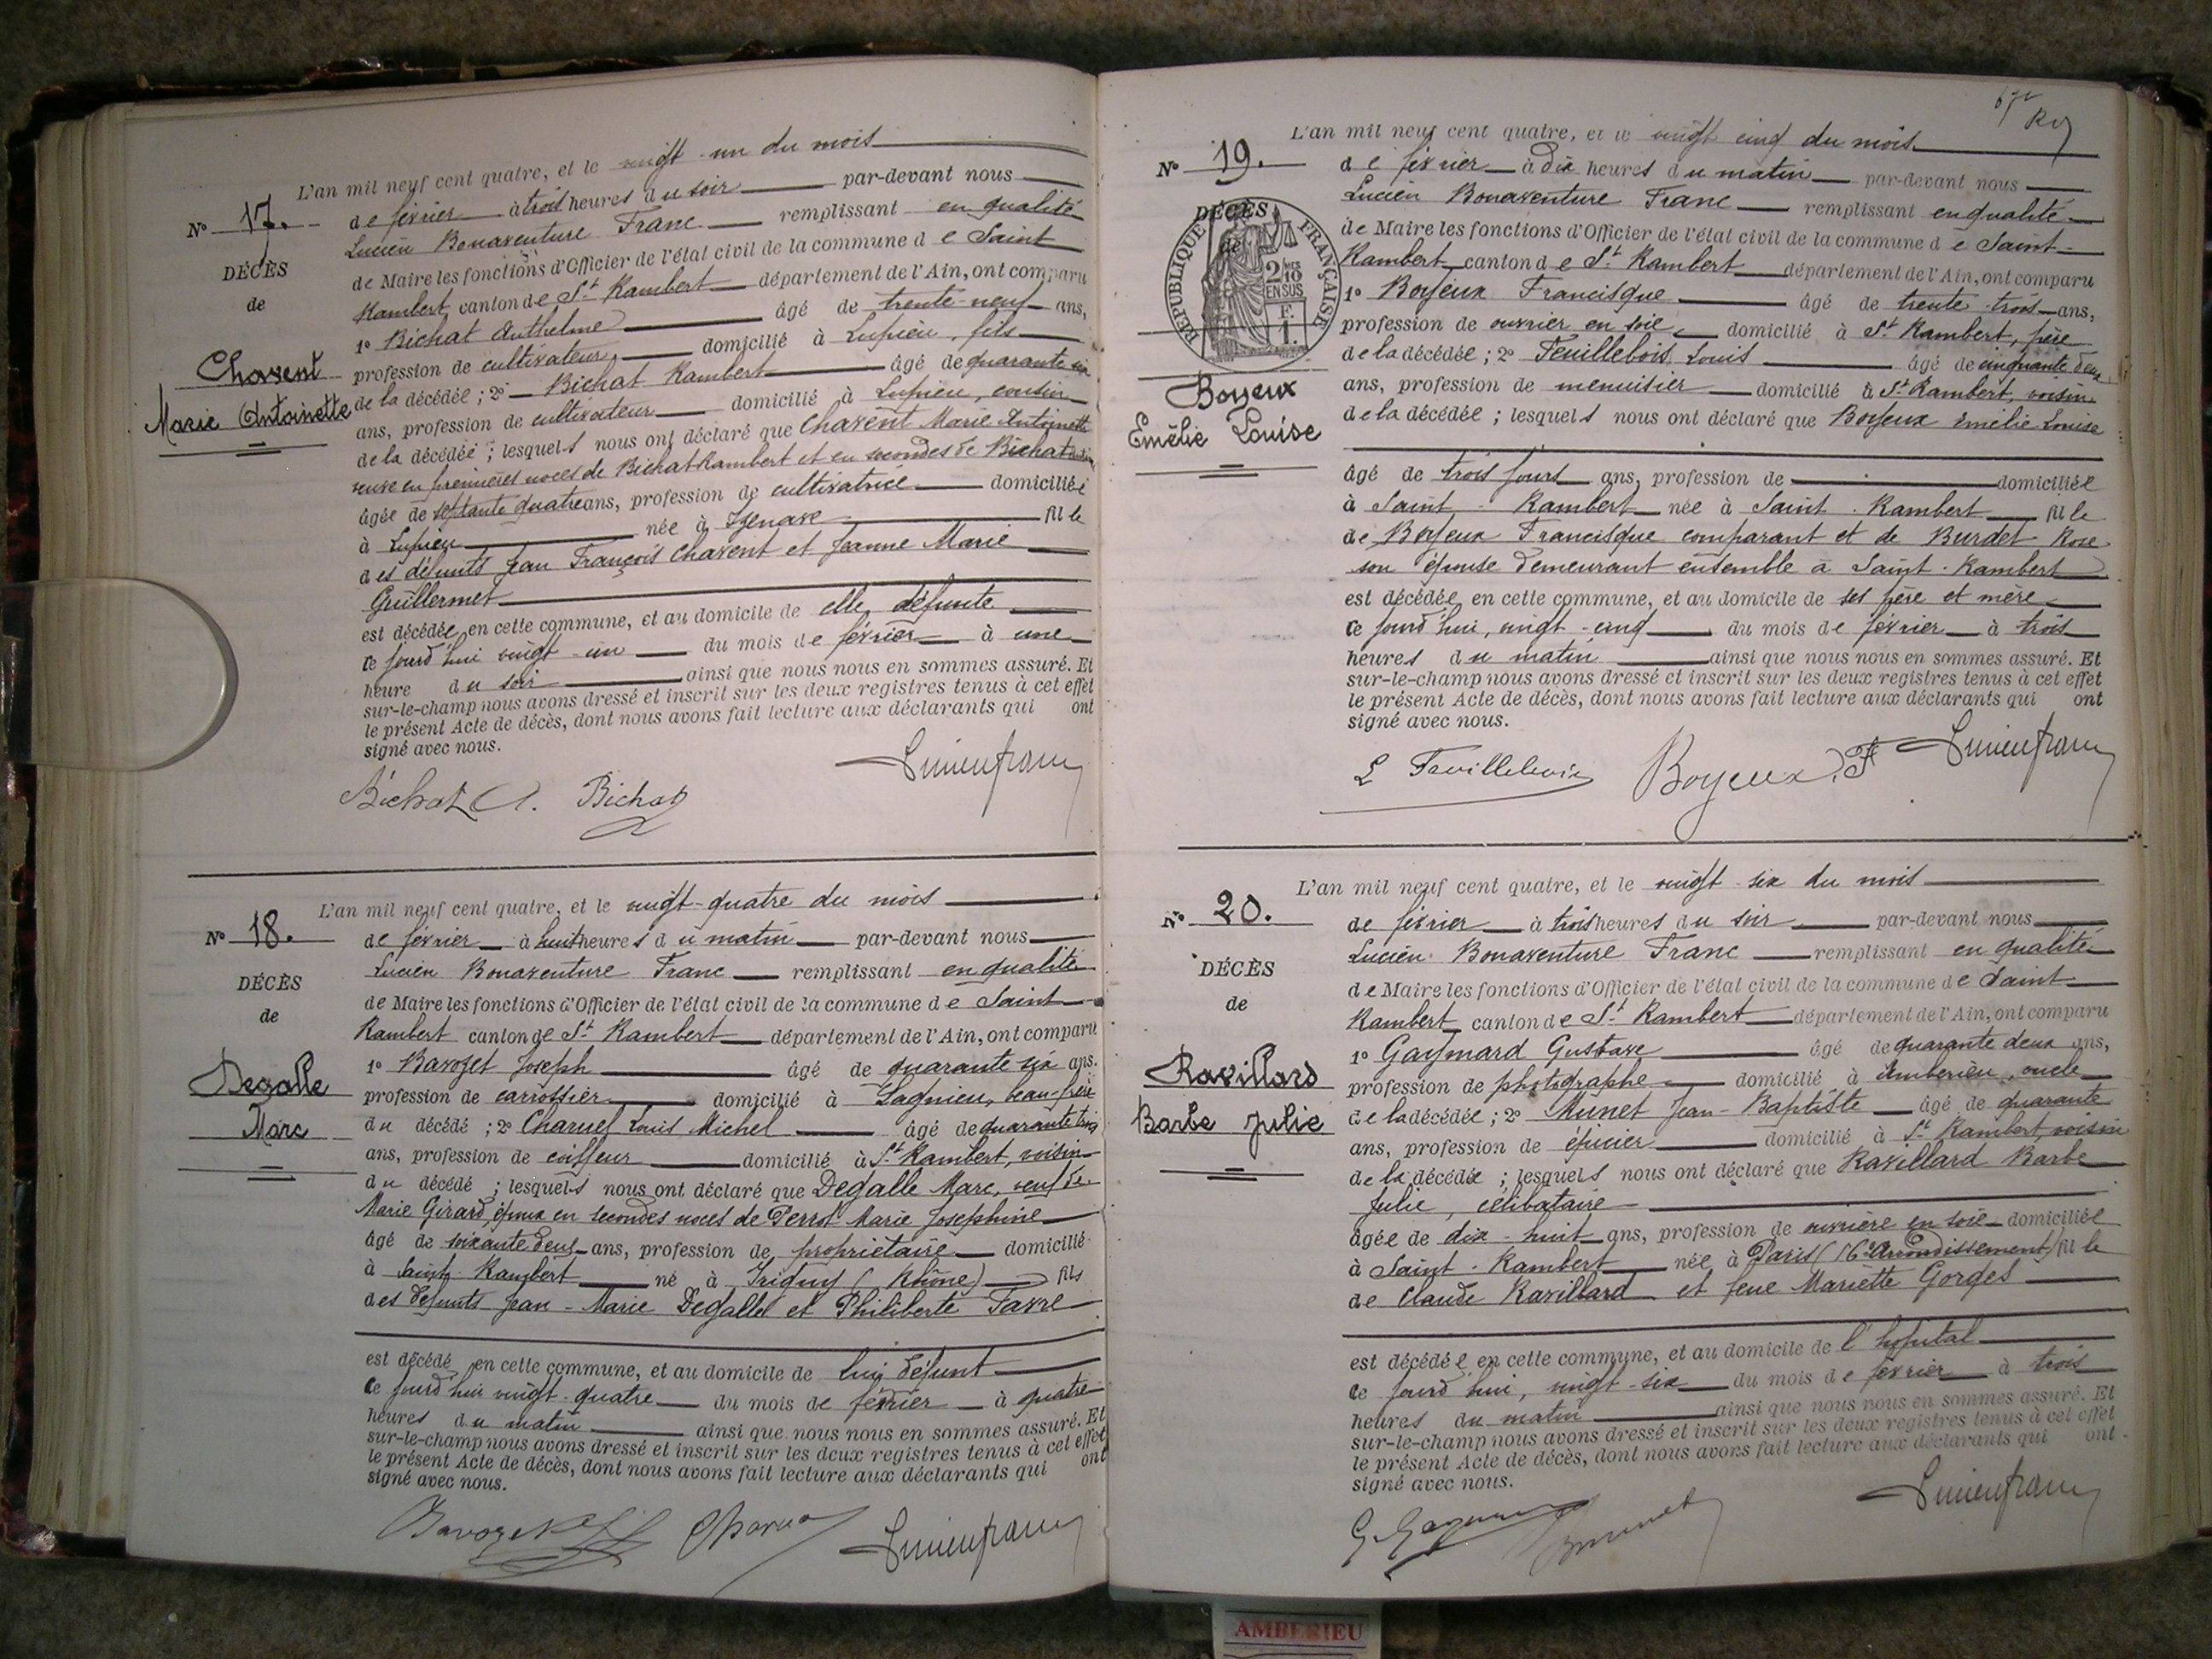 L'an mil neuf cent quatre, et le vingt-un du mois
N° 17. de février à trois heures du soir par-devant nous
Lucien Bonaventure Franc remplissant en qualité
DÉCÈS de Maire les fonctions d'Officier de l'état civil de la commune de Saint
de Rambert canton de St Rambert département de l'Ain, ont comparu
1° Bichat Anthelme âgé de trente-neuf ans,
Chavent profession de cultivateur domicilié à Lupieu, fils
Marie Antoinette de la décédée ; 2° Bichat Rambert âgé de quarante six
ans, profession de cultivateur domicilié à Lupieu, cousin
de la décédée ; lesquels nous ont déclaré que Chavent Marie Antoinette
veuve en premières noces de Bichat Rambert et en secondes de Bichat
âgée de septante quatre ans, profession de cultivatrice domiciliée
à Lupieu née à Izenave fille
des défunts Jean François Chavent et Jeanne Marie
Guillermet
est décédée en cette commune, et au domicile de elle défunte
ce jourd'hui vingt-un du mois de février à une
heure du soir ainsi que nous nous en sommes assuré. Et
sur-le-champ nous avons dressé et inscrit sur les deux registres tenus à cet effet
le présent Acte de décès, dont nous avons fait lecture aux déclarants qui ont
signé avec nous.
Bichat A. Bichat Lucien franc
L'an mil neuf cent quatre, et le vingt-quatre du mois
N° 18. de février à huit heures du matin par-devant nous
Lucien Bonaventure Franc remplissant en qualité
DÉCÈS de Maire les fonctions d'Officier de l'état civil de la commune de Saint
de Rambert canton de St Rambert département de l'Ain, ont comparu
1° Bavozet Joseph âgé de quarante six ans.
Degalle profession de carrossier domicilié à Lagnieu, beau-frère
Marc du décédé ; 2° Charuel Louis Michel âgé de quarante cinq
ans, profession de coiffeur domicilié à St Rambert, voisin
du décédé ; lesquels nous ont déclaré que Degalle Marc, veuf de
Marie Girard, époux en secondes noces de Perrot Marie Joséphine
âgé de soixante deux ans, profession de propriétaire domicilié
à Saint-Rambert né à Irigny (Rhône) fils
des défunts Jean-Marie Degalle et Philiberte Favre
est décédé en cette commune, et au domicile de lui défunt
ce jourd'hui vingt-quatre du mois de février à quatre
heures du matin ainsi que nous nous en sommes assuré. Et
sur-le-champ nous avons dressé et inscrit sur les deux registres tenus à cet effet
le présent Acte de décès, dont nous avons fait lecture aux déclarants qui ont
signé avec nous.
Bavozet Lucien franc
L'an mil neuf cent quatre, et le vingt cinq du mois
N° 19. de février à dix heures du matin par-devant nous
Lucien Bonaventure Franc remplissant en qualité
DÉCÈS de Maire les fonctions d'Officier de l'état civil de la commune de Saint-
de Rambert canton de St Rambert département de l'Ain, ont comparu
RÉPUBLIQUE FRANÇAISE
2/10 EN SUS
F. 1.
1° Boyeux Francisque âgé de trente-trois ans,
profession de ouvrier en soie domicilié à St Rambert, père
de la décédée ; 2° Feuillebois Louis âgé de cinquante deux
Boyeux ans, profession de menuisier domicilié à St Rambert, voisin
Emélie Louise de la décédée ; lesquels nous ont déclaré que Boyeux Emélie Louise
âgé de trois jours ans, profession de domiciliée
à Saint-Rambert née à Saint-Rambert fille
de Boyeux Francisque comparant et de Burdet Rose
son épouse demeurant ensemble à Saint-Rambert
est décédée en cette commune, et au domicile de ses père et mère
ce jourd'hui, vingt-cinq du mois de février à trois
heures du matin ainsi que nous nous en sommes assuré. Et
sur-le-champ nous avons dressé et inscrit sur les deux registres tenus à cet effet
le présent Acte de décès, dont nous avons fait lecture aux déclarants qui ont
signé avec nous.
L Feuillebois Boyeux. F Lucien franc
L'an mil neuf cent quatre, et le vingt-six du mois
N° 20. de février à trois heures du soir par-devant nous
Lucien Bonaventure Franc remplissant en qualité
DÉCÈS de Maire les fonctions d'Officier de l'état civil de la commune de Saint
de Rambert canton de St Rambert département de l'Ain, ont comparu
1° Gaymard Gustave âgé de quarante deux ans,
Ravillard profession de photographe domicilié à Ambérieu, oncle
Barbe Julie de la décédée ; 2° Munet Jean-Baptiste âgé de quarante
ans, profession de épicier domicilié à St Rambert, voisin
de la décédée ; lesquels nous ont déclaré que Ravillard Barbe
Julie, célibataire
âgée de dix-huit ans, profession de ouvrière en soie domiciliée
à Saint-Rambert née à Paris (16e arrondissement) fille
de Claude Ravillard et feue Mariette Gorges
est décédée en cette commune, et au domicile de l'hôpital
ce jourd'hui, vingt-six du mois de février à trois
heures du matin ainsi que nous nous en sommes assuré. Et
sur-le-champ nous avons dressé et inscrit sur les deux registres tenus à cet effet
le présent Acte de décès, dont nous avons fait lecture aux déclarants qui ont
signé avec nous.
G. Gaymard Munet Lucien franc
AMBERIEU